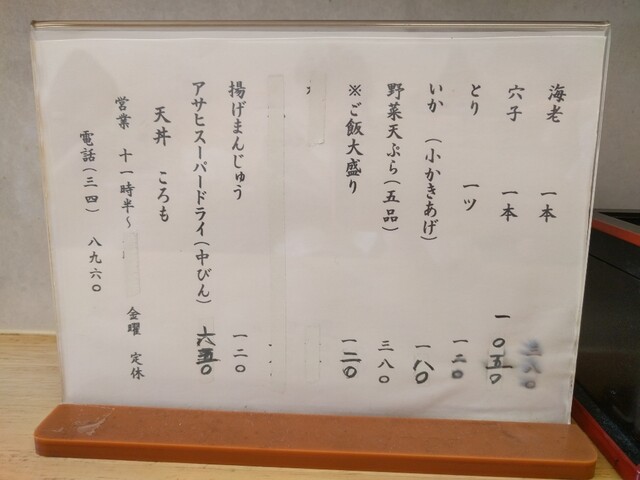 海老 一本 三八〇
穴子 一本 一〇五〇
とり 一ツ 一二〇
いか (小かきあげ) 一八〇
野菜天ぷら(五品) 三八〇
※ご飯大盛り 一二〇
揚げまんじゅう 一二〇
アサヒスーパードライ(中びん) 六五〇
天丼 ころも
営業 十一時半〜 金曜 定休
電話(三四) 八九六〇